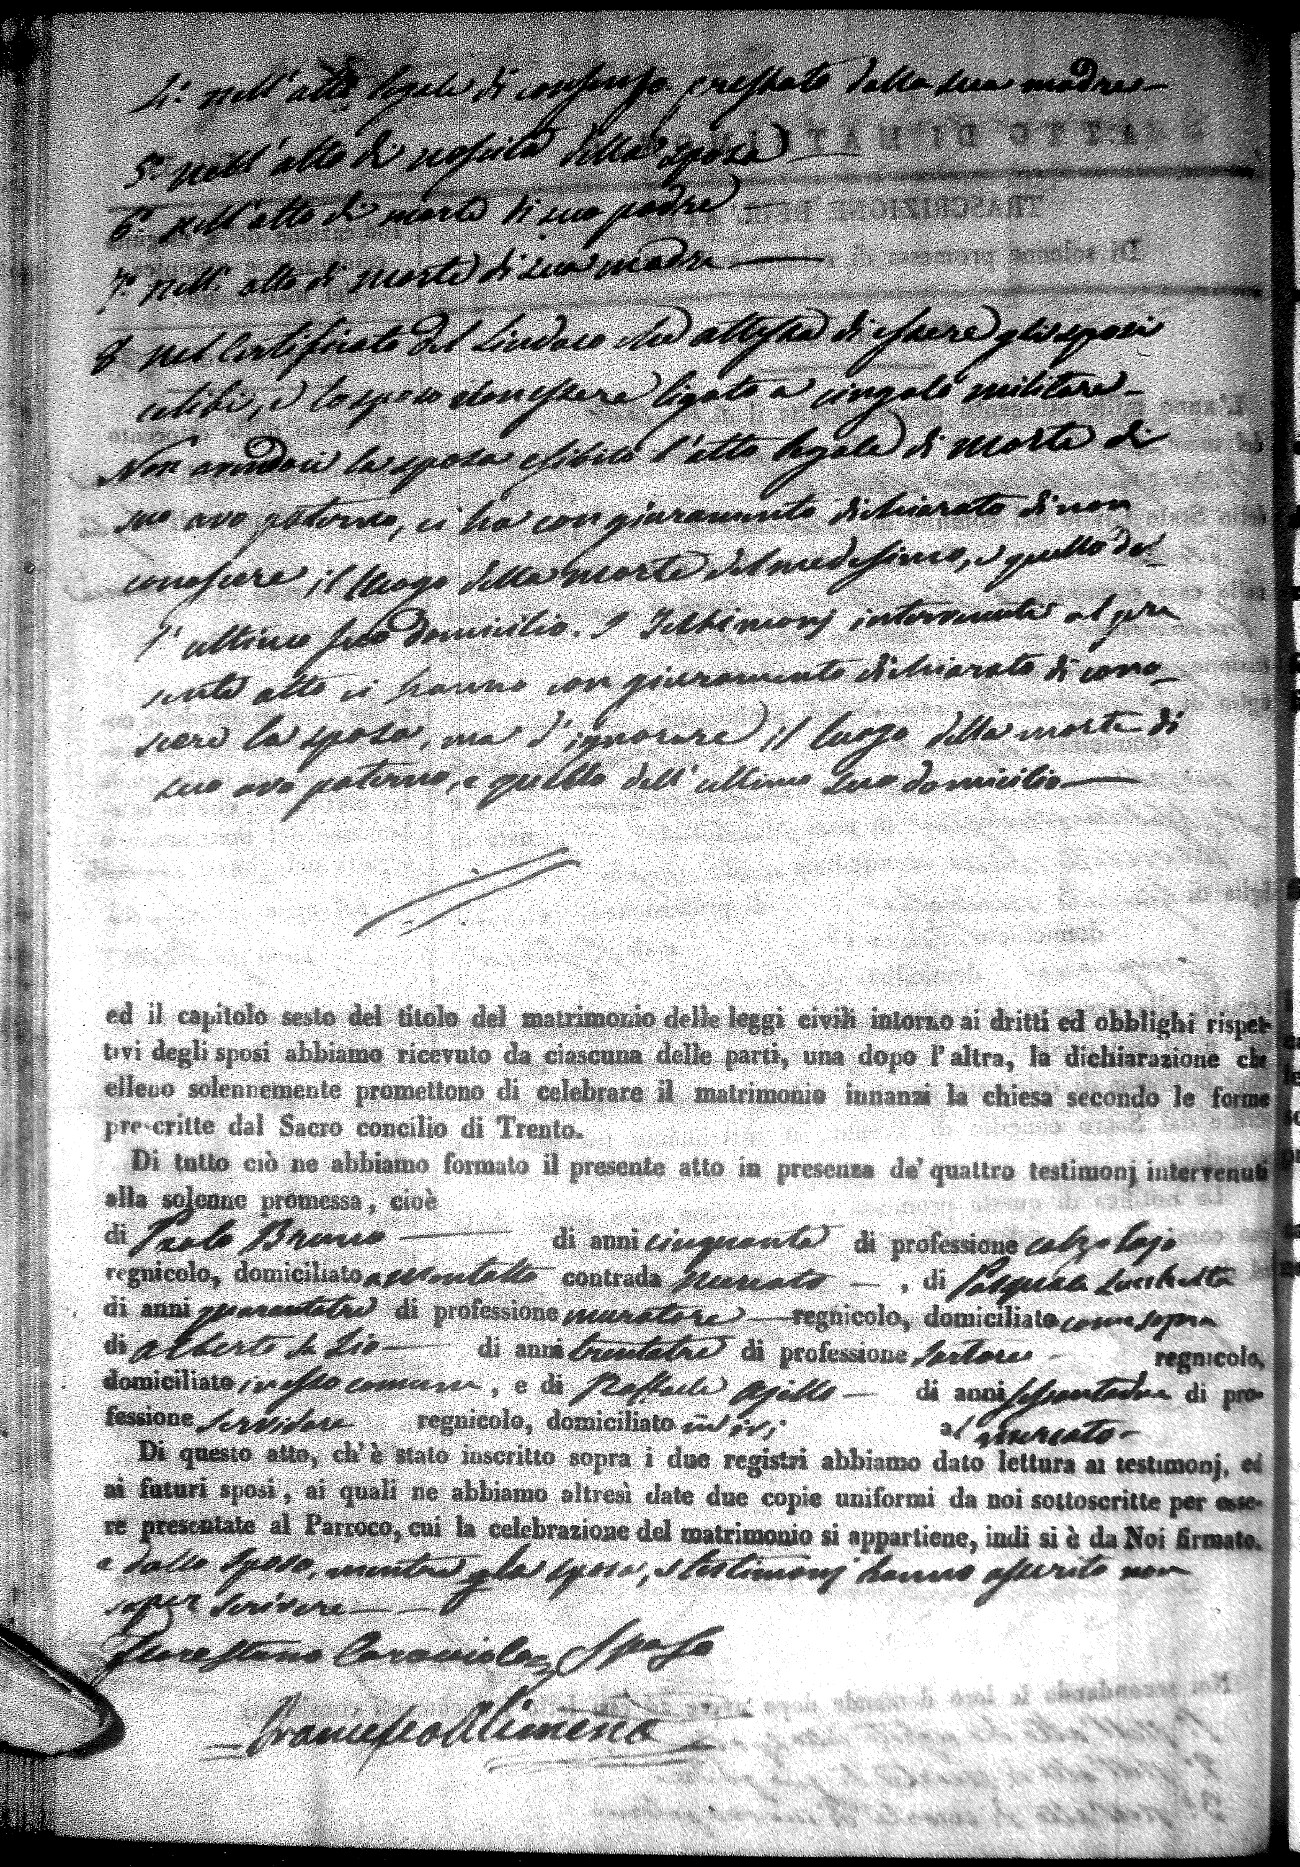 4.° nell'atto legale di consenso prestato dalla sua madre —
5.° nell'atto di nascita della sposa —
6.° nell'atto di morte di suo padre —
7.° nell'atto di morte di sua madre —
8.° nel Certificato del Sindaco che attesta di essere gli sposi
celibi, e lo sposo non essere ligato a cingolo militare —
Non avendoci la sposa esibito l'atto legale di morte di
suo avo paterno, ci ha con giuramento dichiarato di non
conoscere il luogo della morte del medesimo, e quello del-
l'ultimo suo domicilio. I Testimonj intervenuti al pre
sente atto ci hanno con giuramento dichiarato di cono-
scere la sposa, ma d'ignorare il luogo della morte di
suo avo paterno, e quello dell'ultimo suo domicilio —
ed il capitolo sesto del titolo del matrimonio delle leggi civili intorno ai dritti ed obblighi rispet-
tivi degli sposi abbiamo ricevuto da ciascuna delle parti, una dopo l'altra, la dichiarazione che
elleno solennemente promettono di celebrare il matrimonio innanzi la chiesa secondo le forme
prescritte dal Sacro concilio di Trento.
Di tutto ciò ne abbiamo formato il presente atto in presenza de' quattro testimonj intervenuti
alla solenne promessa, cioè
di Paolo Bruno — di anni cinquanta di professione calzolajo
regnicolo, domiciliato a Montalto contrada mercato — , di Pasquale
di anni quarantatre di professione muratore — regnicolo, domiciliato come sopra
di Alberto de Lio — di anni trentatre di professione sartore — regnicolo,
domiciliato in esso comune , e di Raffaele Ajello — di anni sessantadue di pro-
fessione servidore regnicolo, domiciliato ivi al mercato —
Di questo atto, ch'è stato inscritto sopra i due registri abbiamo dato lettura ai testimonj, ed
ai futuri sposi, ai quali ne abbiamo altresì date due copie uniformi da noi sottoscritte per esse-
re presentate al Parroco, cui la celebrazione del matrimonio si appartiene, indi si è da Noi firmato.
e dallo sposo, mentre la sposa, e testimonj hanno asserito non
saper scrivere —
Florestano Caracciolo Sposo
Francesco Alimena